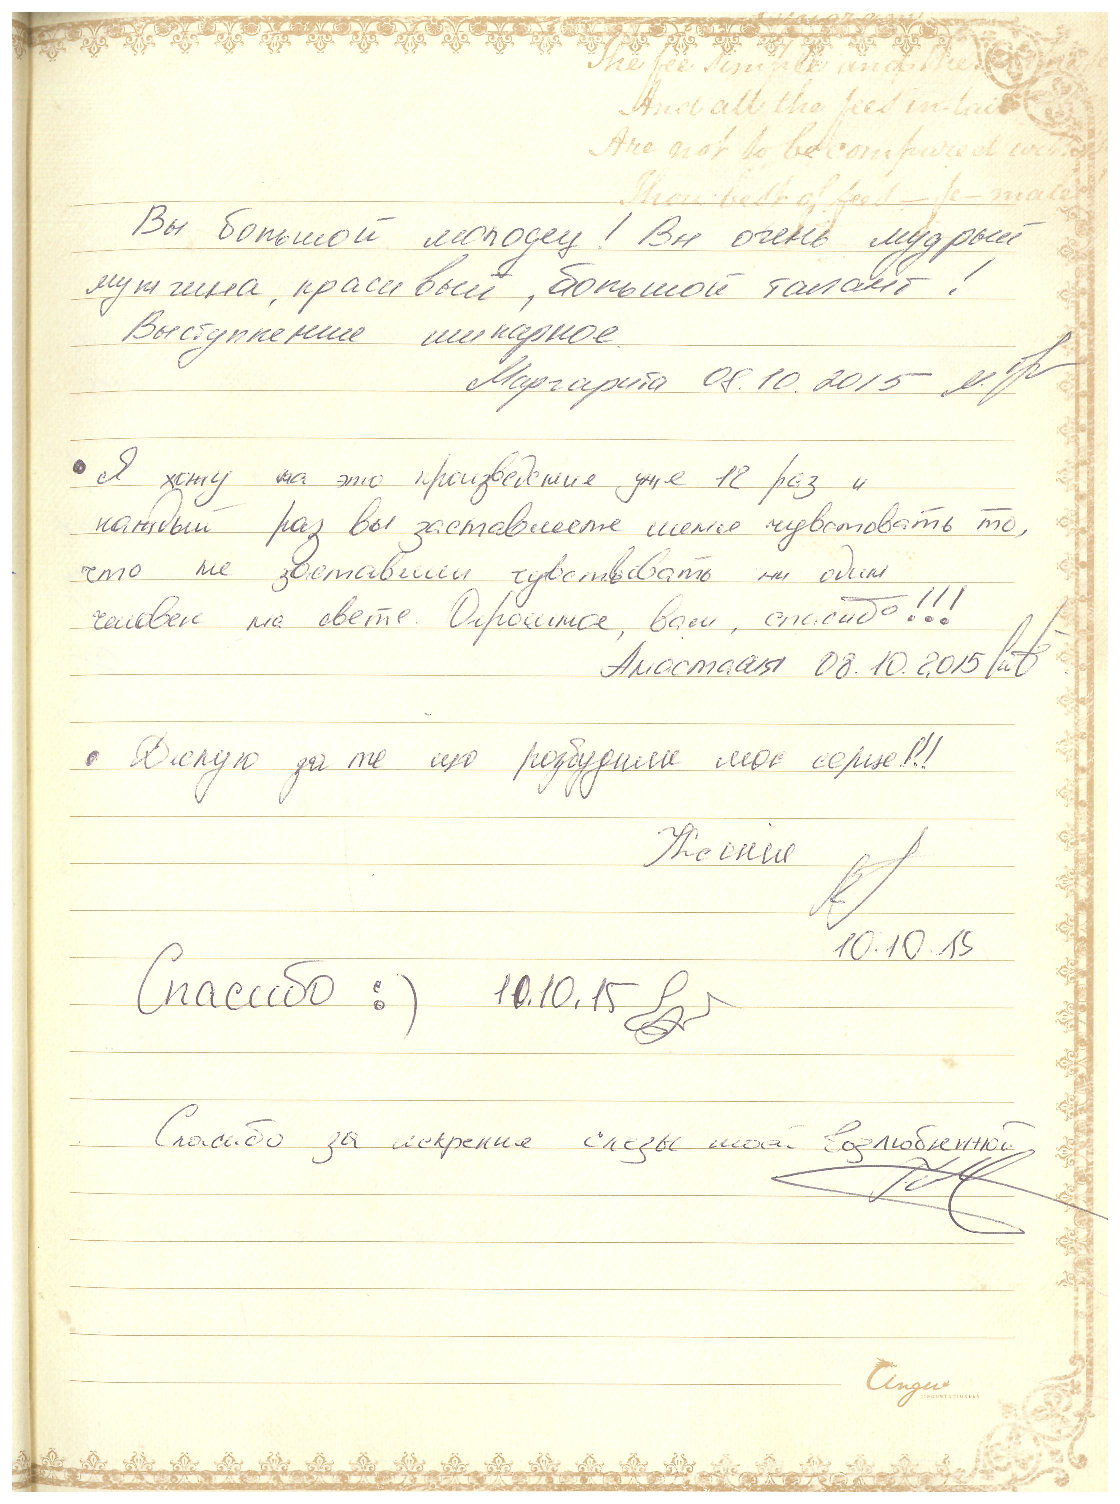 The fee simple and the
And all the fees in tail
Are not to be compared with
Thou best of fees — fe-male
Вы большой молодец! Вы очень мудрый
мужчина, красивый, большой талант!
Выступление шикарное.
Маргарита 08.10.2015
• Я хожу на это произведение уже 12 раз и
каждый раз вы заставляете меня чувствовать то,
что не заставлял чувствовать ни один
человек на свете. Огромное, вам, спасибо!!!
Анастасия 08.10.2015
• Дякую за те що розбудили моє серце!!!
Ксения
10.10.15
Спасибо :) 10.10.15
Спасибо за искрение слезы моей возлюбленной